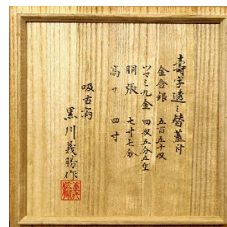 壽字透シ替蓋付
金含銀 五百五十匁
ツマミ九金 四匁五分五厘
胴張 七寸七分
高サ 四寸
吸古斎
黒川義勝作